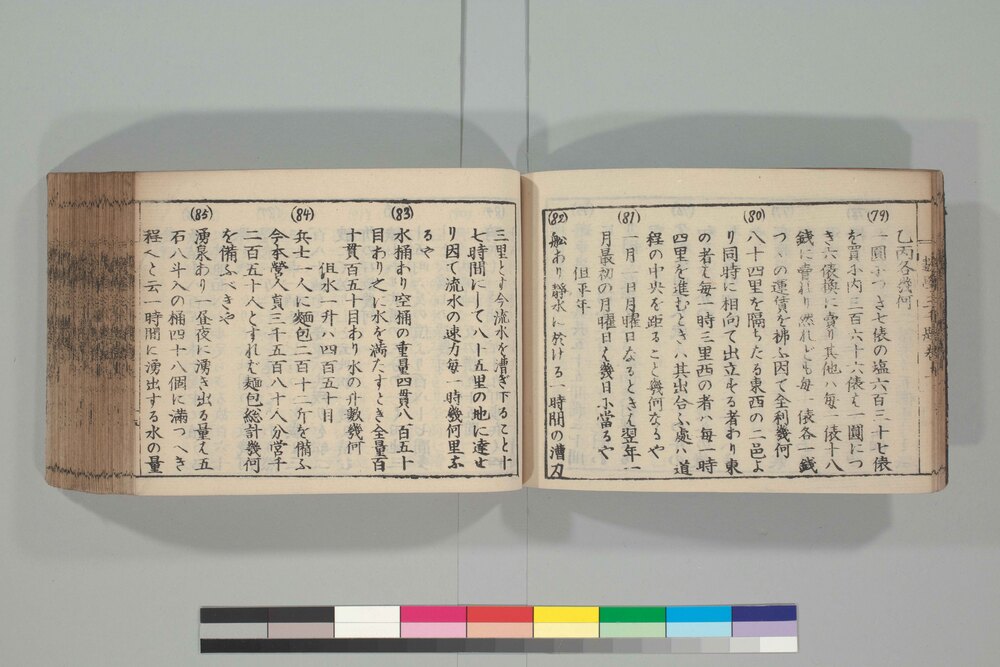 乙丙各幾何
(79)
一圓につき七俵の塩六百三十七俵
を買ふ内三百六十六俵は一圓につ
き六俵換に賣り其他ハ毎一俵十八
銭に賣れり然れども毎一俵各一銭
つゝの運賃を拂ふ因て全利幾何
(80)
八十四里を隔らたる東西の二邑よ
り同時に相向て出立する者あり東
の者は毎一時三里西の者ハ毎一時
四里を進むときハ其出合ふ處ハ道
程の中央を距ること幾何なるや
(81)
一月一日月曜日なるときは翌年一
月最初の月曜日は幾日に當るや
但平年
(82)
舩あり静水に於ける一時間の漕力
三里とす今流水を漕ぎ下ること十
七時間にして八十五里の地に達せ
り因て流水の速力毎一時幾何里ふ
るや
(83)
水桶あり空桶の重量四貫八百五十
目あり之に水を満たすとき全量百
十貫百五十目あり水の升數幾何
但水一升ハ四百五十目
(84)
兵士一人に麺包二百十二斤を備ふ
今本營人員三千五百八十八人分營千
二百五十人とすれば麺包総計幾何
を備ふべきや
(85)
湧泉あり一昼夜に湧き出る量は五
石八斗入の桶四十八個に滿つへき
程と云一時間に湧出する水の量